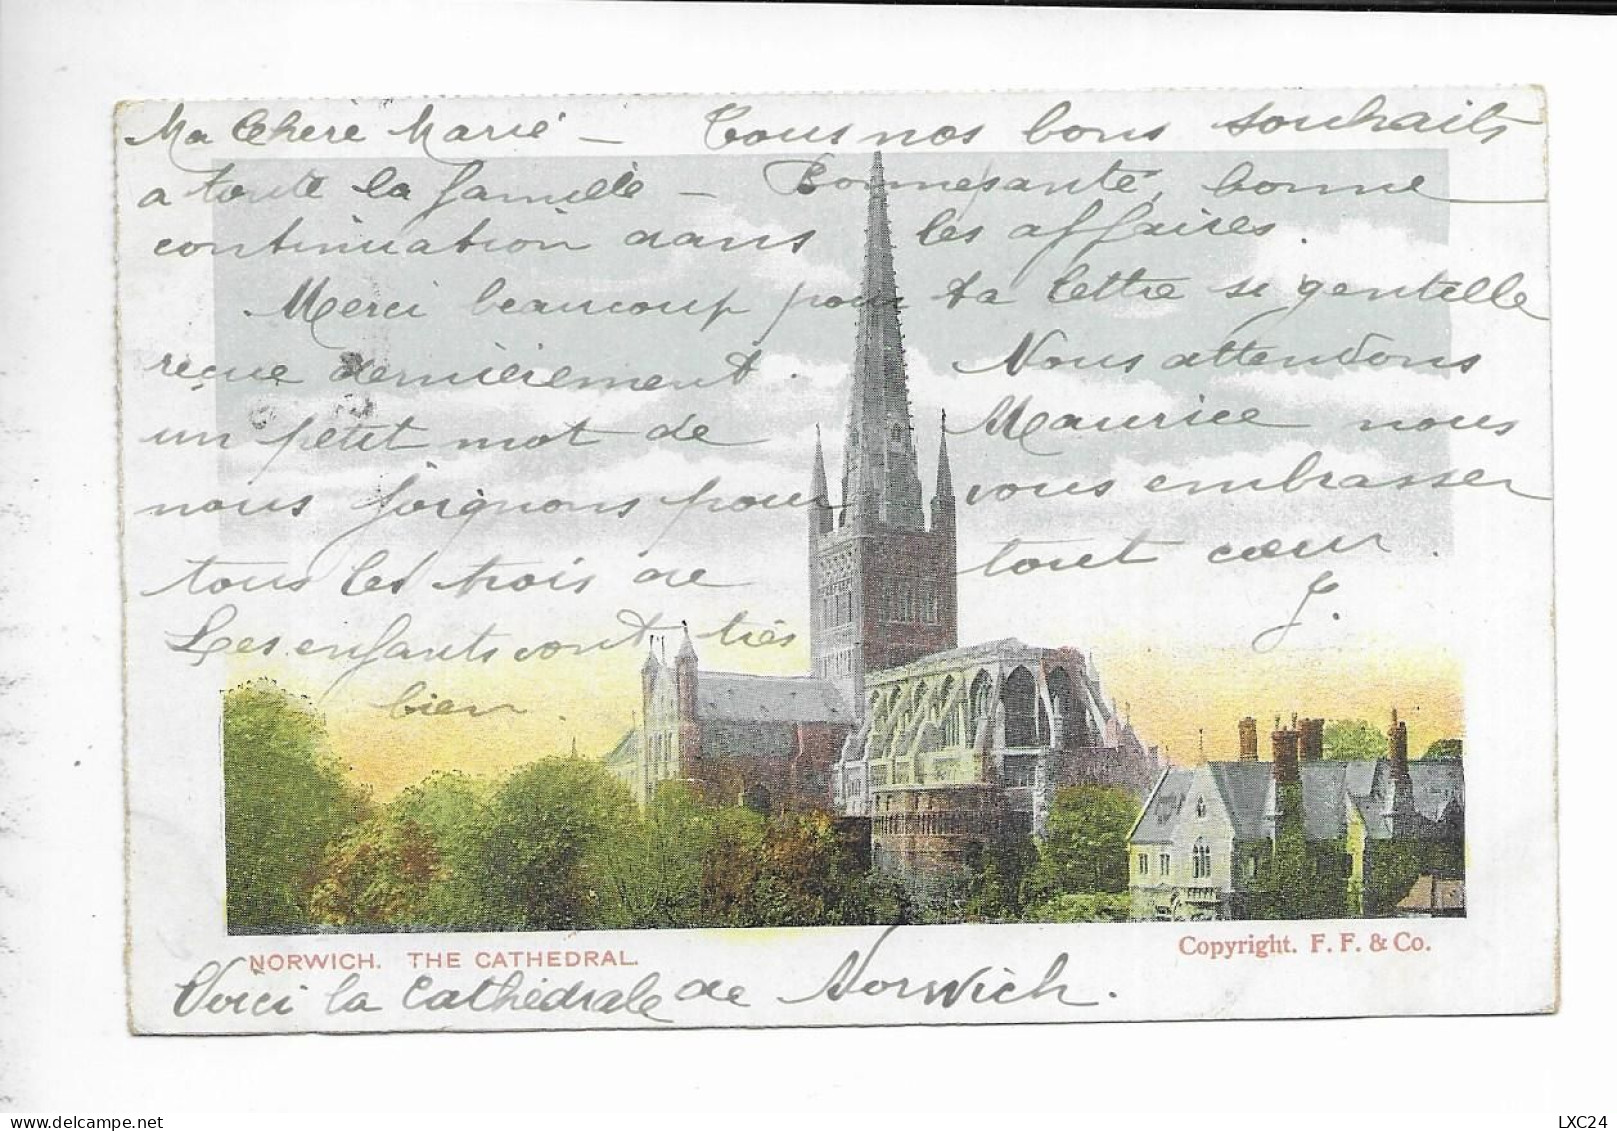 Ma Chère Marie — Tous nos bons souhaits
a toute la famille — Bonne santé, bonne
continuation dans les affaires.
Merci beaucoup pour ta lettre si gentille
reçue dernièrement. Nous attendons
un petit mot de Maurice nous
nous joignons pour vous embrasser
tous les trois de tout cœur.
J.
Les enfants vont très
bien.
NORWICH. THE CATHEDRAL.
Copyright. F. F. & Co.
Voici la Cathédrale de Norwich.
LXC24